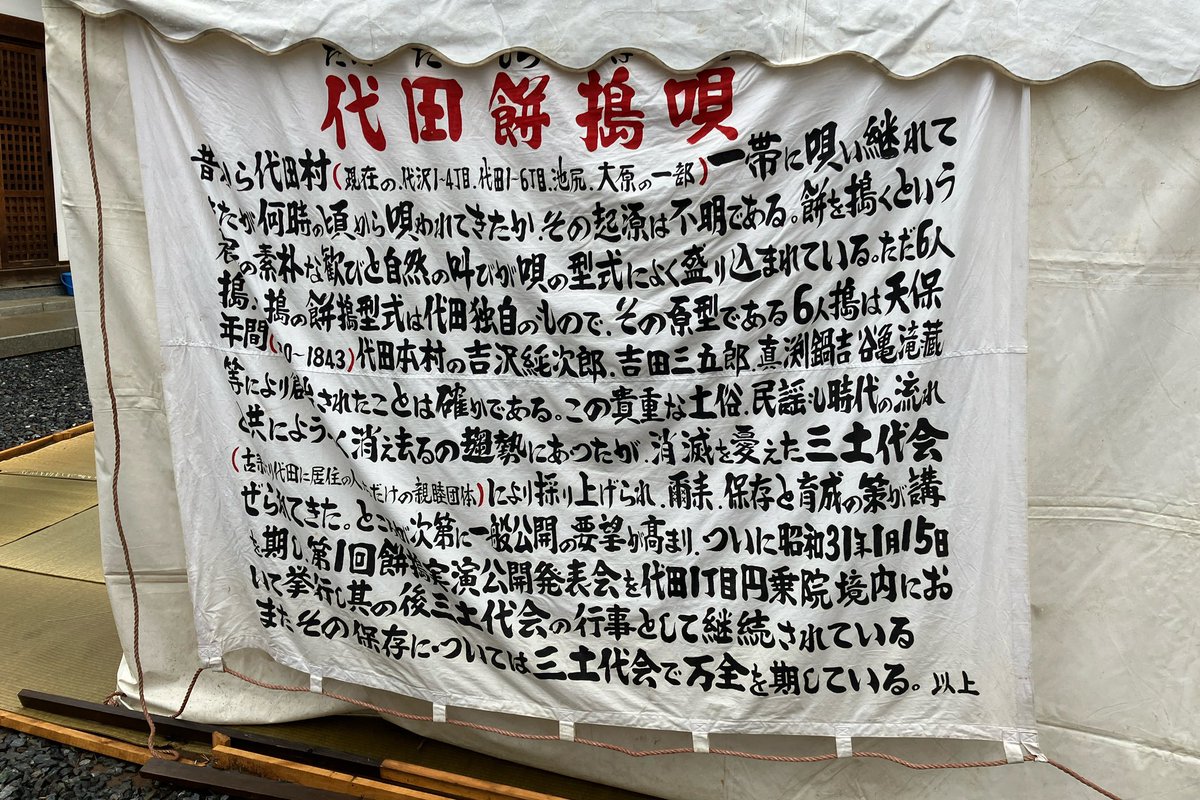 代田餅搗唄
昔から代田村(現在の.代沢1~4丁目.代田1~6丁目.池尻.大原の一部)一帯に唄い継れて
きたが何時の頃から唄われてきたか.その起源は不明である。餅を搗くという
の素朴な歓びと自然の叫びが唄の型式によく盛り込まれている。ただ6人
搗.搗の餅搗型式は代田独自のもので.その原型である6人搗は天保
年間(~1843)代田本村の吉沢純次郎.吉田三五郎.真渕鍋吉谷亀滝蔵
等により創されたことは確かである。この貴重な土俗.民謡も時代の流れ
と共にようく消え去るの趨勢にあつたが.消滅を憂えた三土代会
(古より代田に居住の人だけの親睦団体)により採り上げられ.爾来.保存と育成の策が講
ぜられてきた。ところが次第に一般公開の要望が高まり.ついに昭和31年1月15日
を期し第1回餅搗実演公開発表会を代田1丁目円乗院境内にお
いて挙行し其の後三土代会の行事として継続されている
またその保存に・ついては三土代会で万全を期している。以上